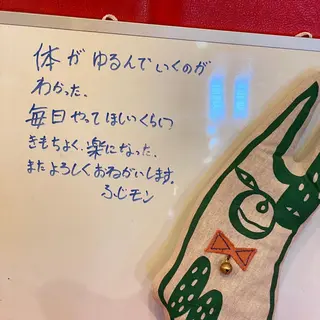 体がゆるんでいくのが
わかった、
毎日やってほしいくらい
きもちよく、楽になった、
またよろしくおねがいします。
ふじモン